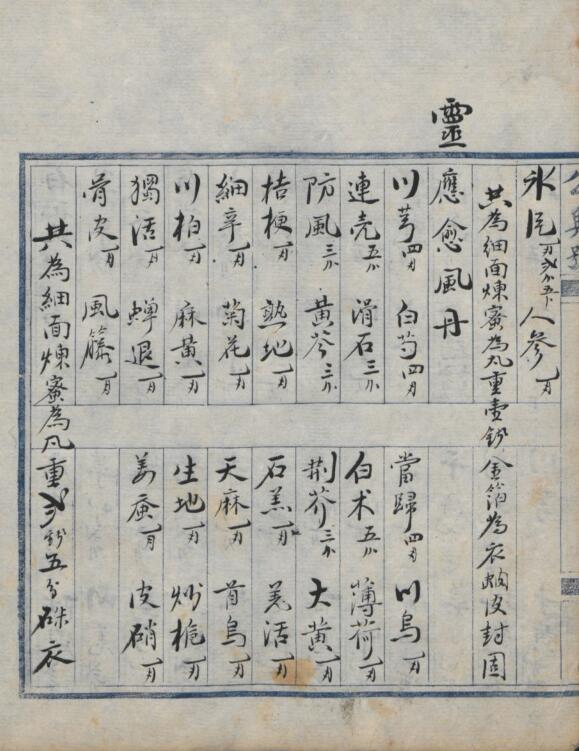 冰片一刄弍分五卜 人參一刄
共為細面煉蜜為丸重壹錢金箔為衣蜡皮封固
靈應愈風丹
川芎四刄 白芍四刄 當歸四刄 川烏一刄
連壳五分 滑石三分 白术五分 薄荷一刄
防風三分 黃芩三分 荆芥三分 大黃一刄
桔梗一刄 熟地一刄 石羔一刄 羌活一刄
細辛一刄 菊花一刄 天麻一刄 首烏一刄
川柏一刄 麻黃一刄 生地一刄 炒梔一刄
獨活一刄 蟬退一刄 姜蚕一刄 皮硝一刄
骨皮一刄 風籐一刄
共為細面煉蜜為丸重弍錢五分硃衣